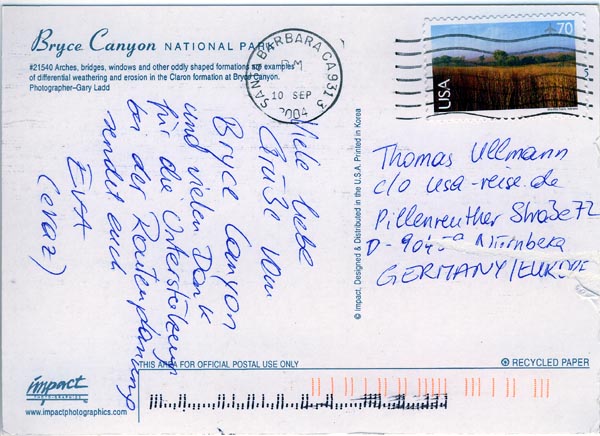 Bryce Canyon NATIONAL PARK
#21540 Arches, bridges, windows and other oddly shaped formations are examples
of differential weathering and erosion in the Claron formation at Bryce Canyon.
Photographer–Gary Ladd
SANTA BARBARA CA 931 3
PM
10 SEP
2004
70
USA
Viele liebe
Grüße vom
Bryce Canyon
und vielen Dank
für die Unterstützung
bei der Routenplanung
sendet euch
EVA
(cevaz)
© Impact, Designed & Distributed in the U.S.A. Printed in Korea
Thomas Ullmann
c/o usa-reise.de
Pillenreuther Straße 72
D-90459 Nürnberg
GERMANY/EUROPE
THIS AREA FOR OFFICIAL POSTAL USE ONLY
RECYCLED PAPER
impact
PHOTO-GRAPHICS
www.impactphotographics.com